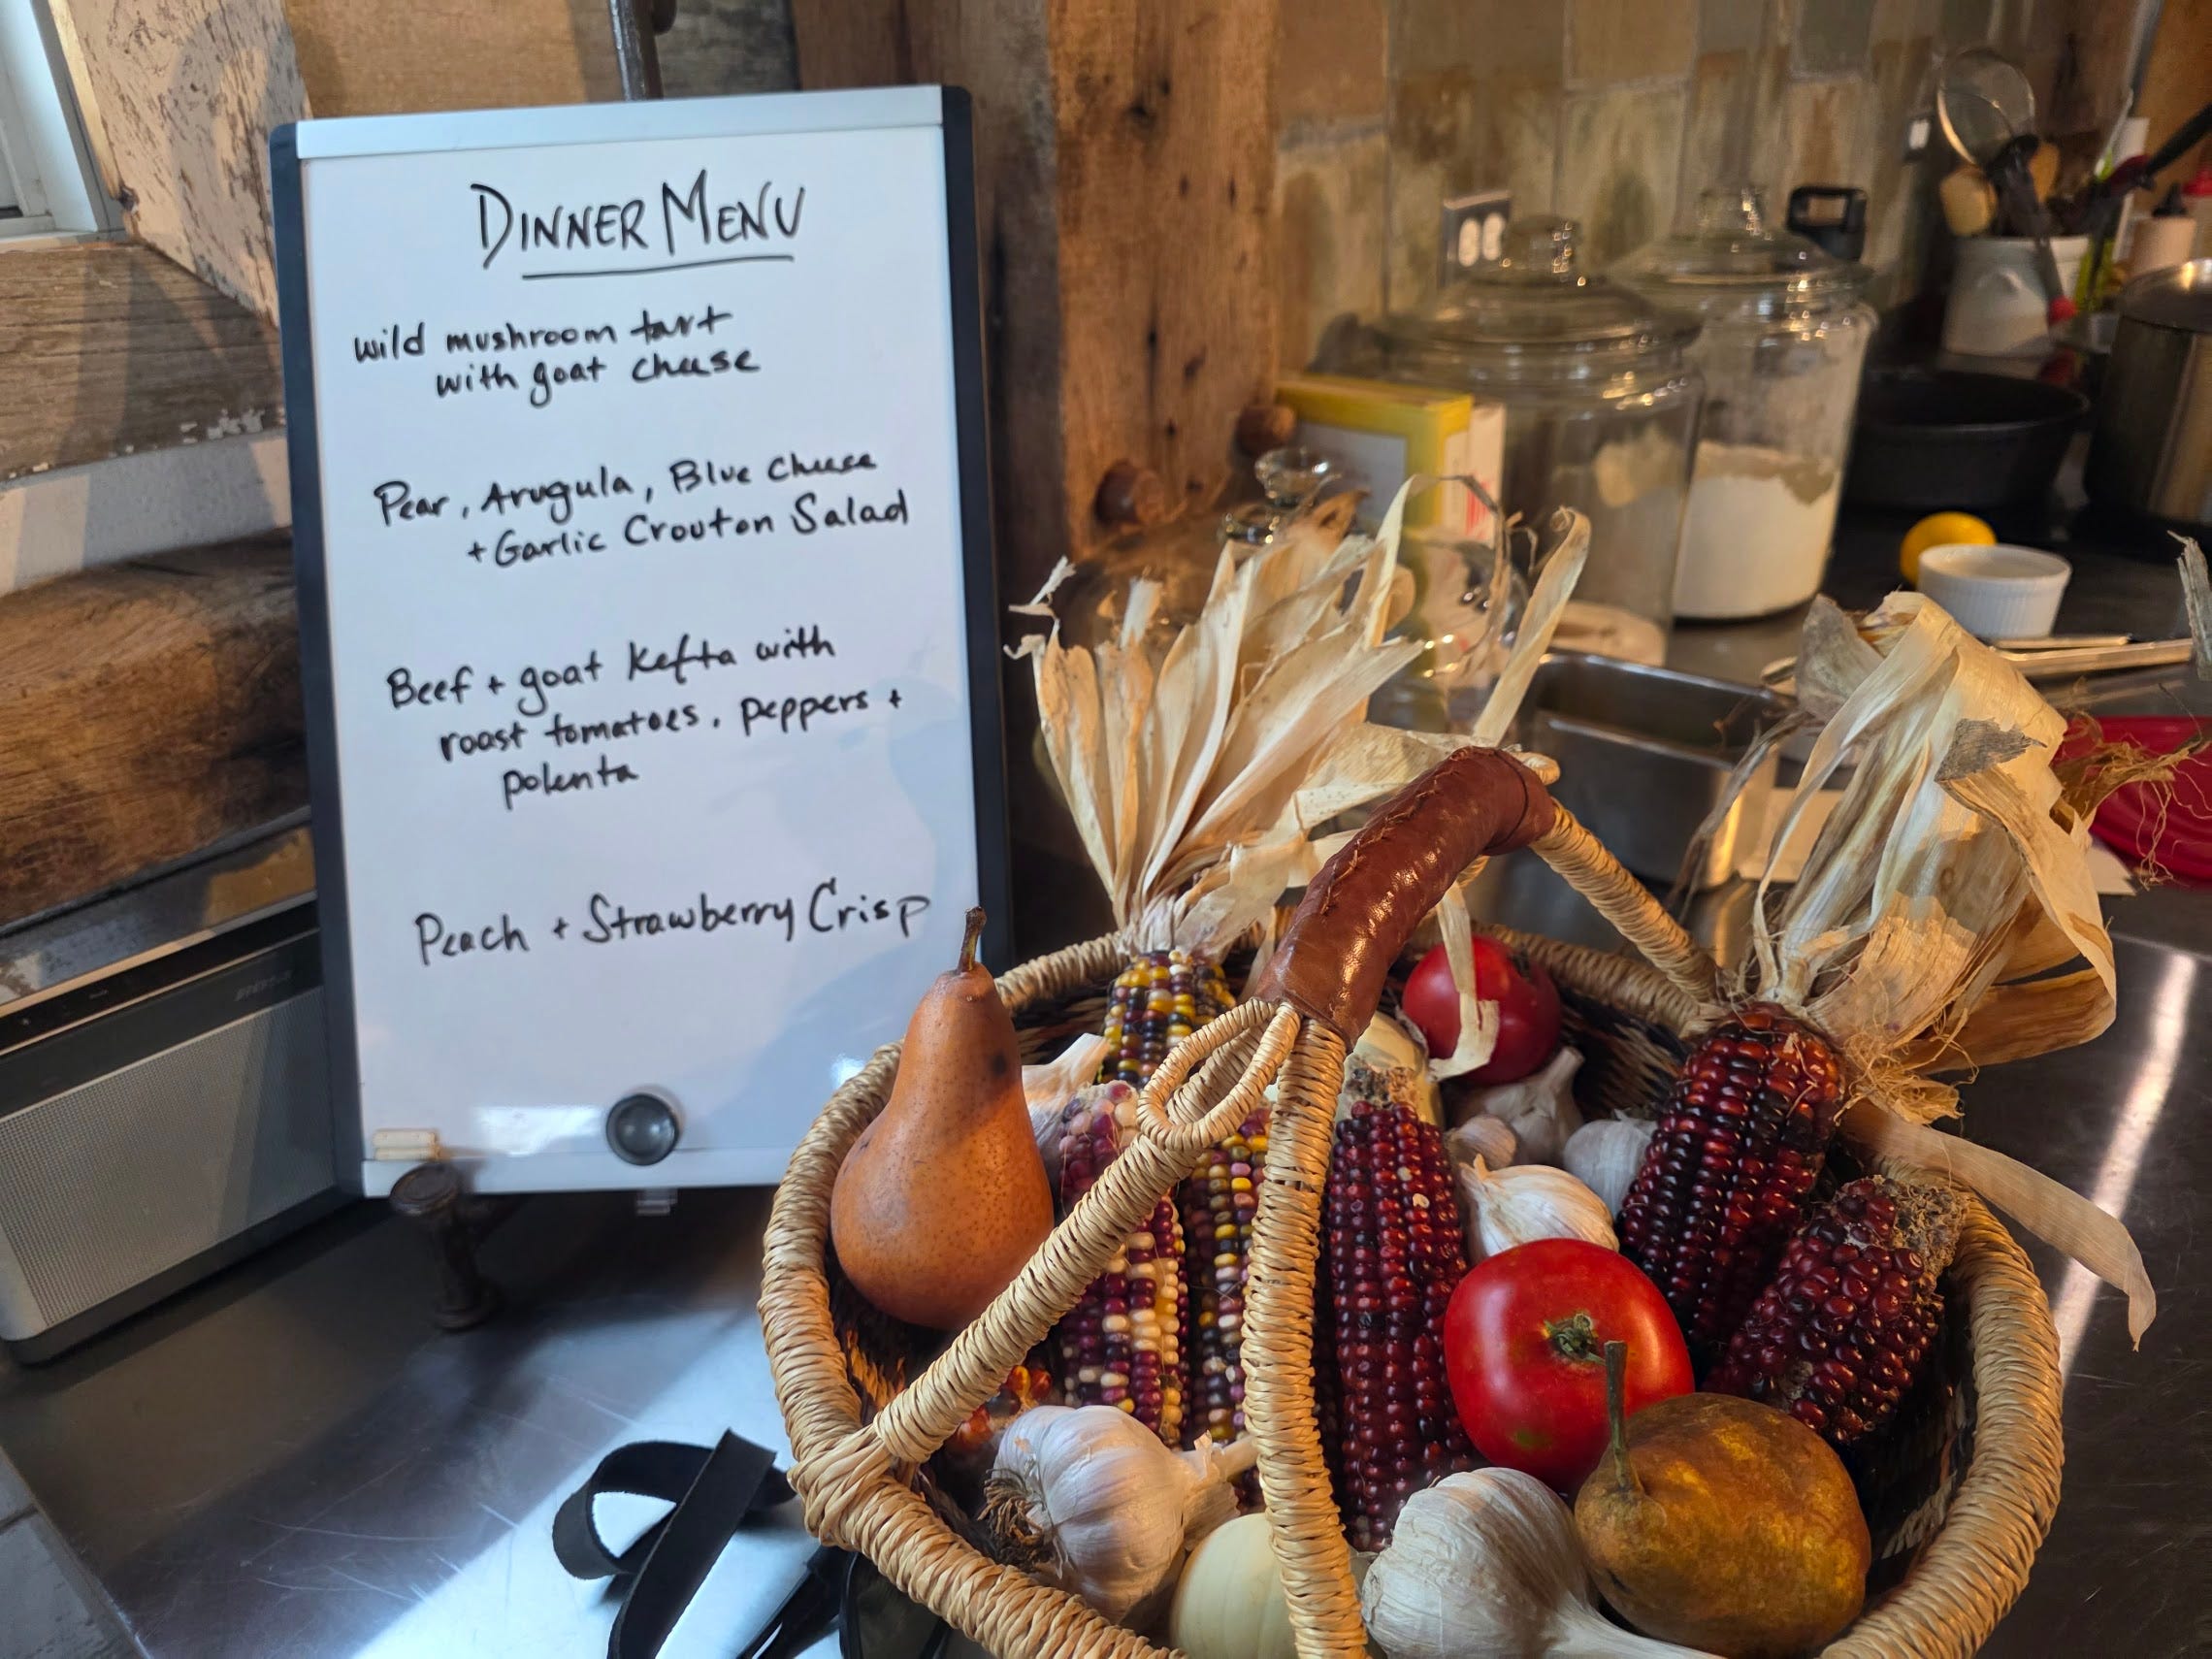 DINNER MENU
wild mushroom tart
with goat cheese
Pear, Arugula, Blue Cheese
+ Garlic Crouton Salad
Beef + goat Kefta with
roast tomatoes, peppers +
polenta
Peach + Strawberry Crisp